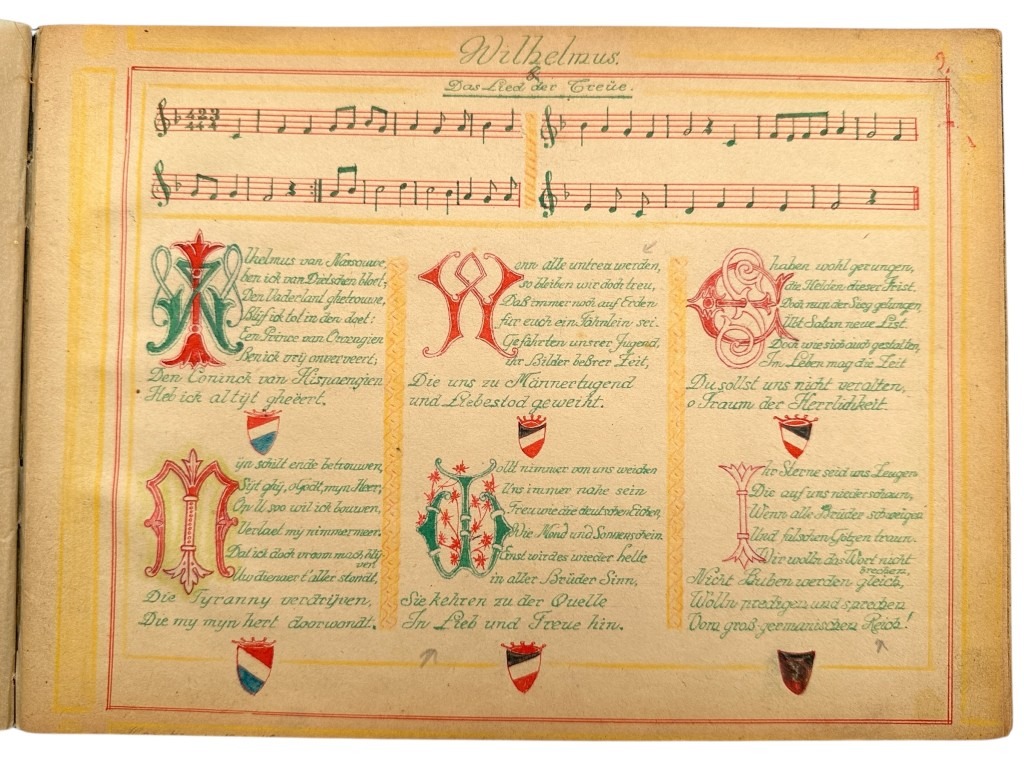 Wilhelmus.
2.
&
Das Lied der Treüe.
4 2 3
4 4 4
Wilhelmus van Nassouwe
ben ick van Dietschen bloet;
Den Vaderlant ghetrouwe,
Blijf ick tot in den doet:
Een Prince van Oraengien
Ben ick vrij onverveert;
Den Coninck van Hispaengien
Heb ick altijt gheëert.
Mijn schilt ende betrouwen,
Sijt ghij, o Godt, mijn Heer,
Op U soo wil ick bouwen,
Verlaet my nimmermeer.
Dat ick doch vroom mach blij
ven
Uw dienaer t'aller stondt,
Die Tyranny verdrijven,
Die my myn hert doorwondt.
Wenn alle untreu werden,
so bleiben wir doch treu,
Daß immer noch auf Erden
für euch ein Fähnlein sei.
Gefährten unsrer Jugend,
ihr Bilder beßrer Zeit,
Die uns zu Männertugend
und Liebestod geweiht.
Wollt nimmer von uns weichen
Uns immer nahe sein
Treu wie die deutschen Eichen,
Wie Mond und Sonnenschein.
Einst wird es wieder helle
in aller Brüder Sinn,
Sie kehren zu der Quelle
In Lieb und Treue hin.
Es haben wohl gerungen,
die Helden dieser Frist
Doch nun der Sieg gelungen
Übt Satan neue List.
Doch wie sich auch gestalten,
Im Leben mag die Zeit
Du sollst uns nicht veralten,
o Traum der Herrlichkeit.
Ihr Sterne seid uns Zeugen
Die auf uns niederschaun,
Wenn alle Brüder schweigen
Und falschen Götzen traun.
Wir wolln das Wort nicht
brechen
Nicht Buben werden gleich,
Wolln predigen und sprechen
Vom groß-germanischen Reich!